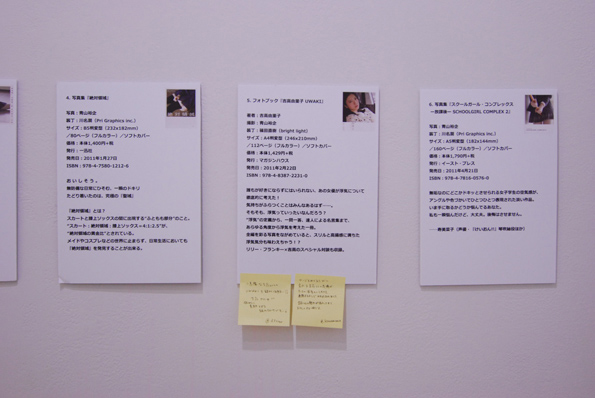 4. 写真集『絶対領域』
写真：青山裕企
装丁：川名潤（Pri Graphics inc.）
サイズ：B5判変型（232x182mm）
／80ページ（フルカラー）／ソフトカバー
価格：本体1,400円+税
発行：一迅社
発売日：2011年1月27日
ISBN：978-4-7580-1212-0
おいしそう。
無防備な日常にひそむ、一瞬のドキリ
たどり着いたのは、究極の「聖域」
『絶対領域』とは？
スカートと膝上ソックスの間に出現する“ふともも部分”のこと。
“スカート：絶対領域：膝上ソックス=4:1:2.5”が、
“絶対領域の黄金比”とされている。
メイドやコスプレなどの世界に止まらず、日常生活においても
「絶対領域」を発見することが出来る。
5. フォトブック『吉高由里子 UWAKI』
著者：吉高由里子
撮影：青山裕企
装丁：（bright light）
サイズ：A4判変型（246x210mm）
／112ページ（フルカラー）／ソフトカバー
価格：本体1,429円+税
発行：マガジンハウス
発売日：2011年2月22日
ISBN：978-4-8387-2231-0
誰もが好きにならずにはいられない、あの女優が浮気について
徹底的に考えた！
気持ちがふらつくことはみんなあるはず……。
そもそも、浮気っていったいなんだろう？
“浮気”の定義から、一問一答、達人による名言集まで、
あらゆる角度から浮気を考えた一冊。
全編を彩る写真をながめていると、スリルと高揚感に満ちた
浮気気分も味わえちゃう！？
リリー・フランキー×吉高のスペシャル対談も収録。
6. 写真集『スクールガール・コンプレックス
SCHOOLGIRL COMPLEX 2』
写真：青山裕企
装丁：川名潤（Pri Graphics inc.）
サイズ：A5判変型（182x144mm）
／160ページ（フルカラー）／ソフトカバー
価格：本体1,700円+税
発行：イースト・プレス
発売日：2011年4月21日
ISBN：978-4-7816-0576-0
無垢なのにどこかドキッとさせられる女子学生の空気感が、
アングルや色づかいでひとつひとつ表現された深い作品。
いま手に取るかどうか悩んでるあなた。
私も一瞬悩んだけど、大丈夫。後悔はさせません。
――寿美菜子（声優・『けいおん!』琴吹紬役ほか）